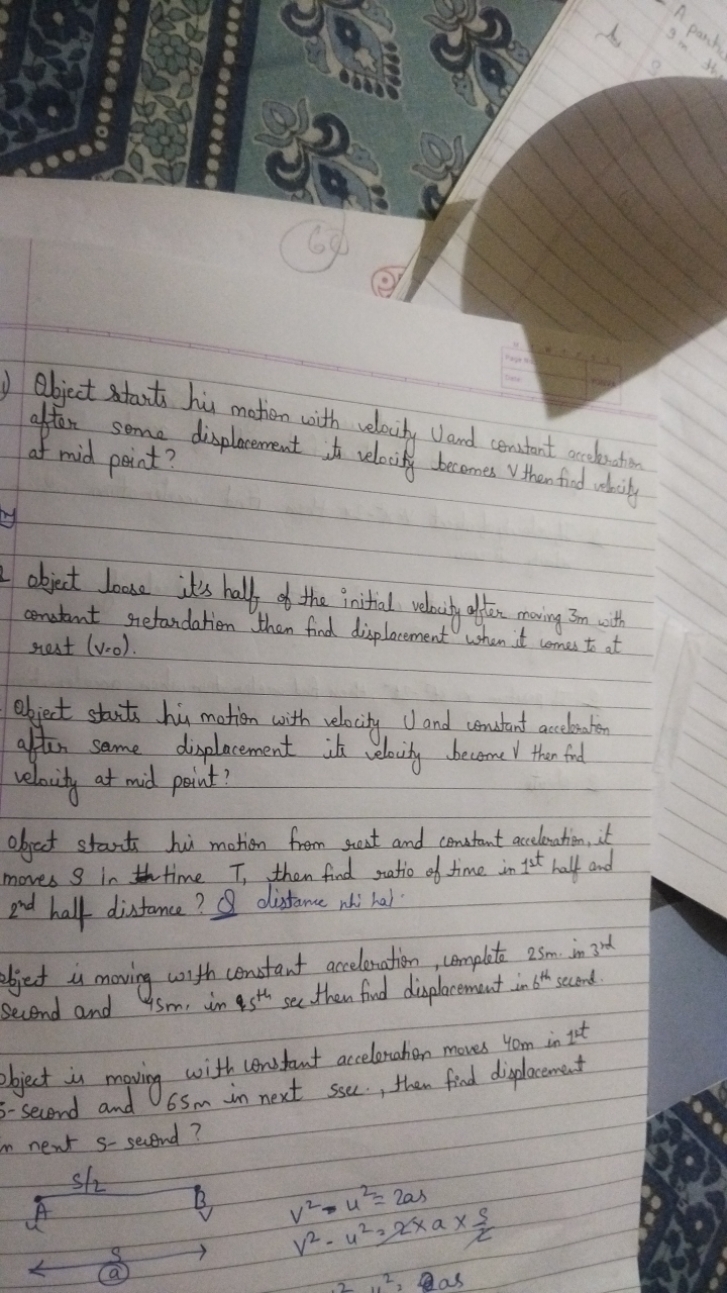 A parti
9 m th
60
Page No
Date
1) Object starts his motion with velocity U and constant acceleration
after some displacement its velocity becomes V then find velocity
at mid point?
2 object loose it's half of the initial velocity after moving 3m with
constant retardation then find displacement when it comes to at
rest (v=0).
Object starts his motion with velocity U and constant acceleration
after same displacement its velocity become V then fnd
velocity at mid point?
object starts his motion from rest and constant acceleration, it
moves S in time T, then find ratio of time in 1st half and
2nd half distance? S distance nhi hai.
object is moving with constant acceleration, complete 25m. in 3rd
second and 45m. in 5th sec then find displacement in 6th second.
object is moving with constant acceleration moves 40m in 1st
5-second and 65m in next 5sec., then find displacement
in next 5-second?
S/2
A B
u V
S
a
V² - u² = 2as
V² - u² = 2 x a x S/2
as